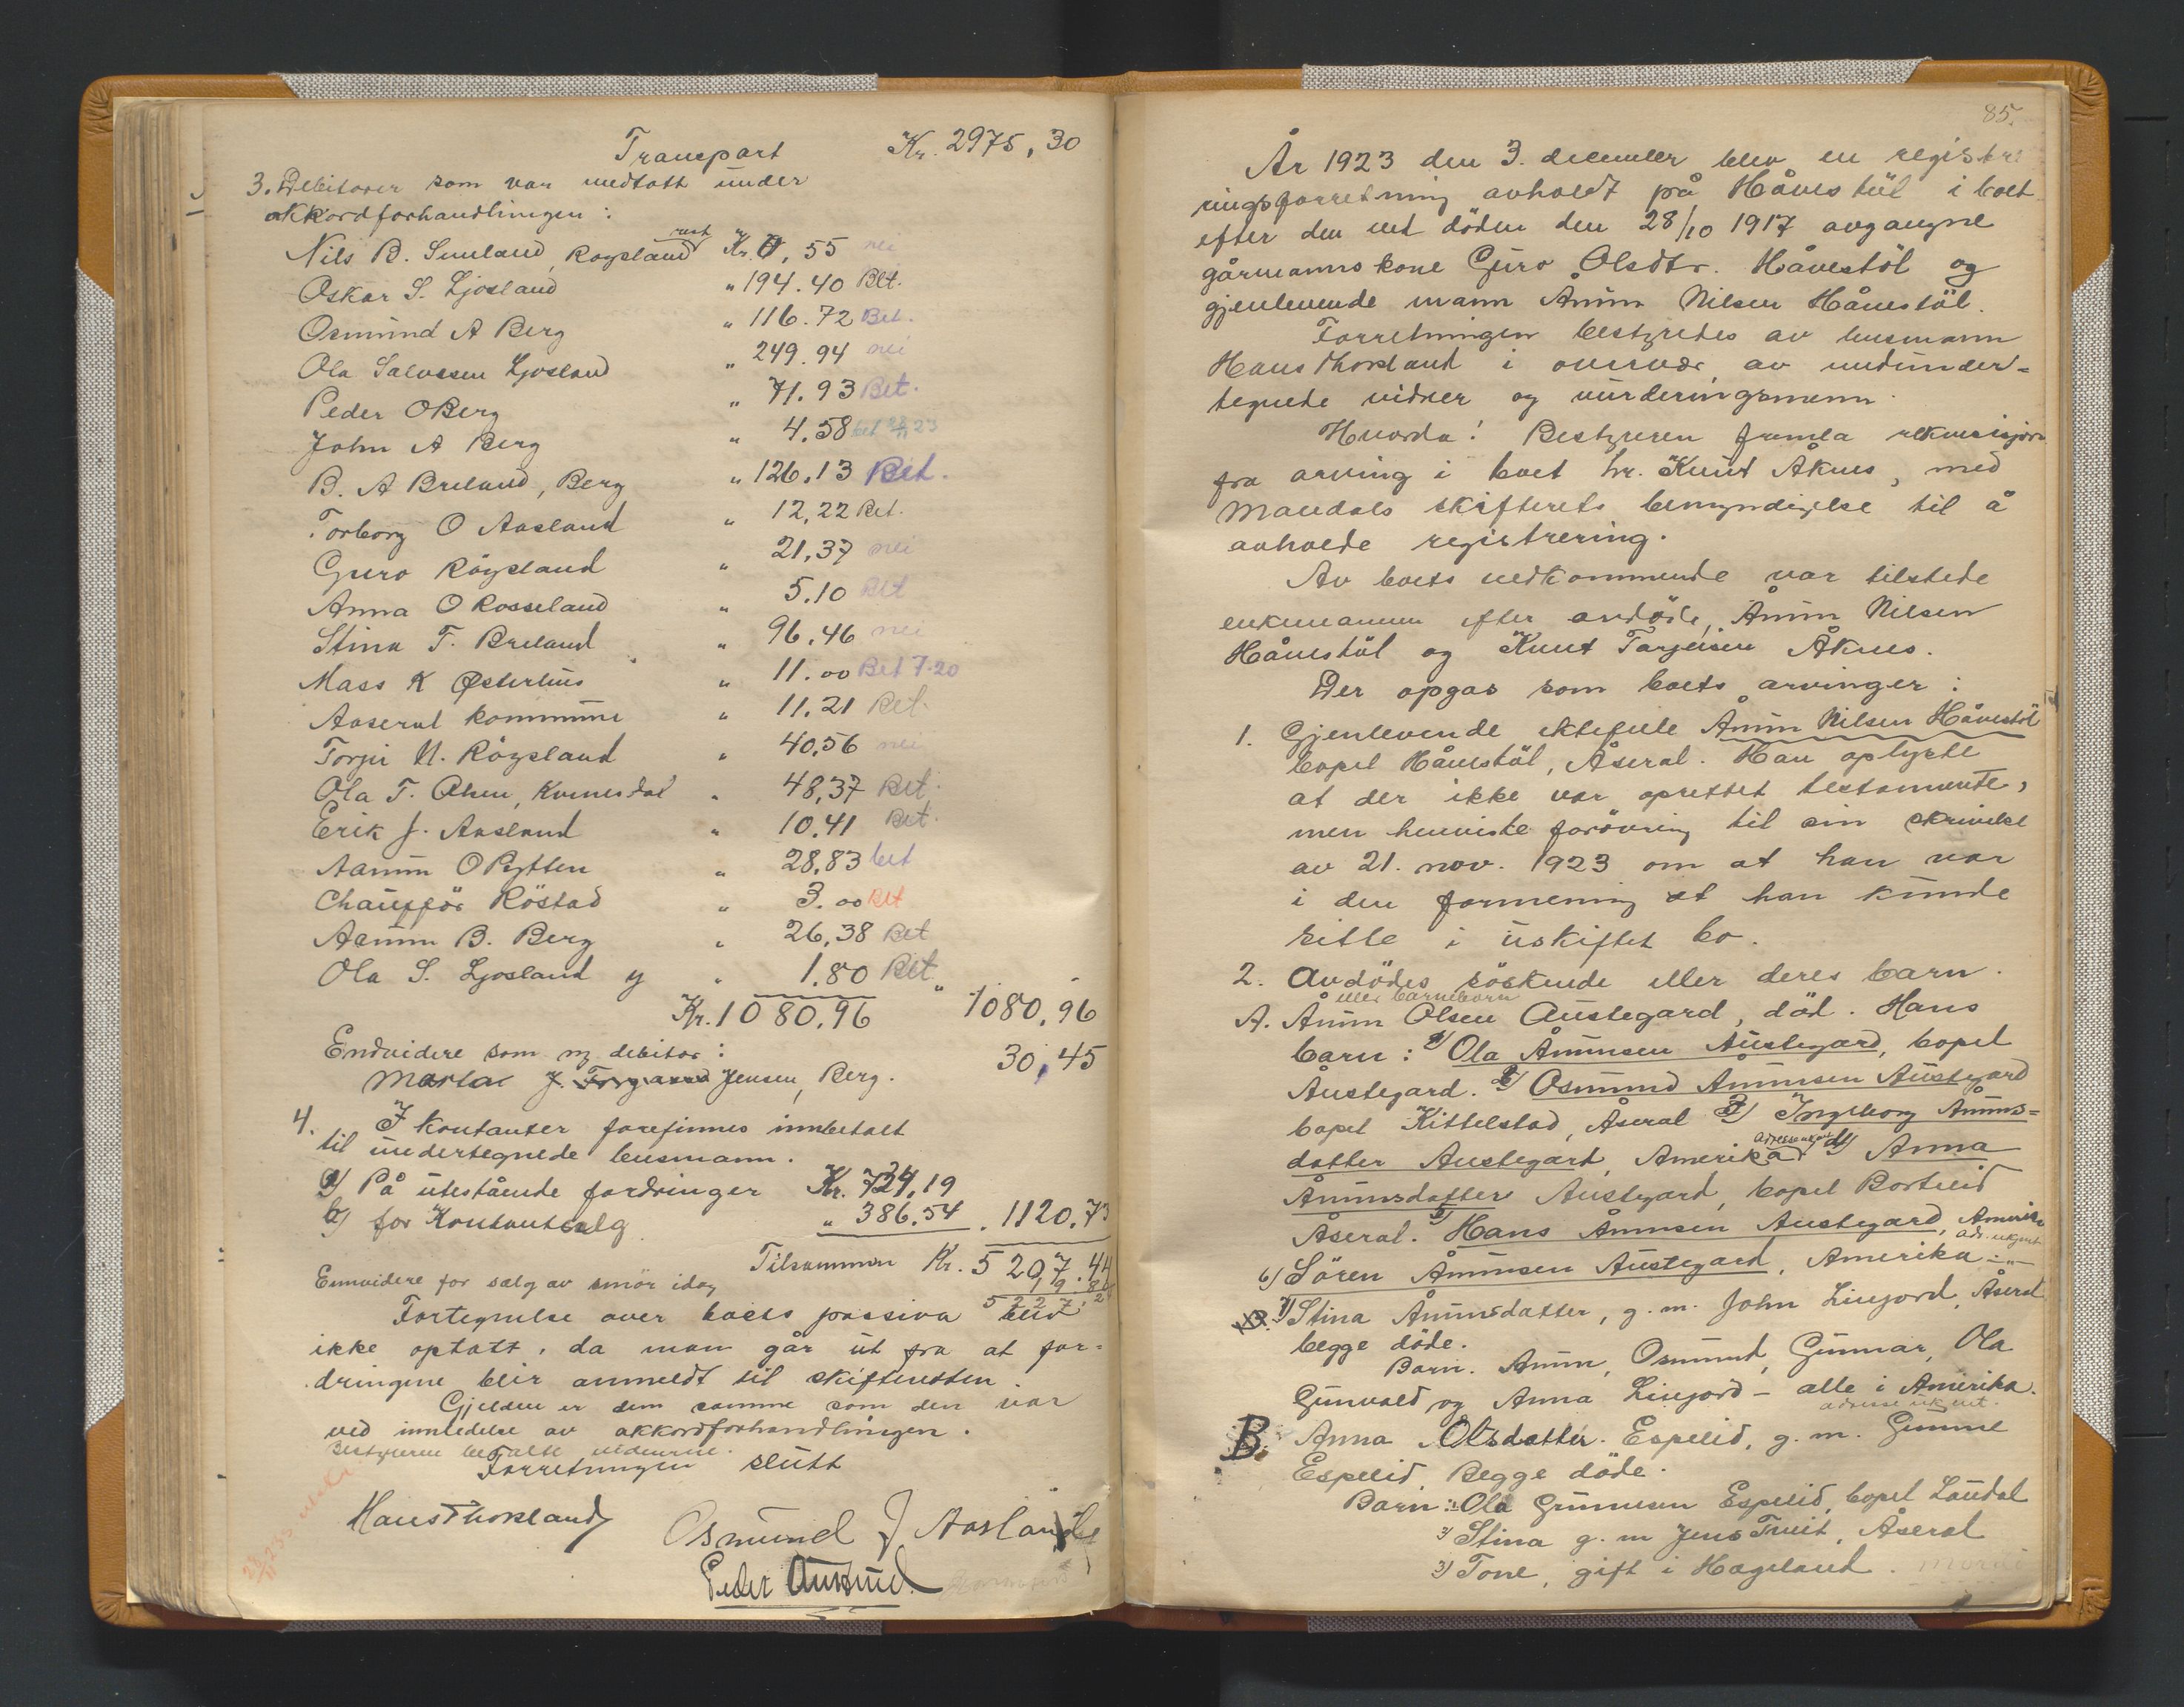 Transport Kr. 2975,30
3. Debitorer som var medtatt under
akkordforhandlingen:
Nils B. Smeland, Røysland rest Kr. 0,55 nei
Oskar S. Ljosland " 194.40 Bet.
Osmund A Berg " 116.72 Bet.
Ola Salvesen Ljosland " 249.94 nei
Peder O Berg " 71.93 Bet.
John A Berg " 4.58 bet 23
B. A Breland, Berg " 126.13 Bet.
Torborg O Aasland " 12,22 Bet.
Guro Röysland " 21,37 nei
Anna O Rosseland " 5.10 Bet
Stina T. Breland " 96.46 nei
Mass K Østerhus " 11.00 Bet 7.20
Aaseral kommune " 11.21 Bet.
Torjei N. Röysland " 40,56 nei
Ola T. Olsen, Kvinesdal " 48,37 Bet.
Erik J. Aasland " 10.41 Bet.
Aanun O Rytten " 28,83 bet
Chaufför Röstad " 3.00 Bet
Aanun B. Berg " 26,38 Bet
Ola S. Ljosland y " 1.80 Bet.
Kr. 1080.96 " 1080,96
Endvidere som ny debitor:
Marta J. Jensen, Berg. 30,45
4. I kontanter forefinnes innbetalt
til undertegnede lensmann.
a) På utestående fordringer Kr. 734,19
b) for Kontantsalg " 386.54 . 1120.73
Tilsammen Kr. 5207.44
Ennvidere for salg av smör idag
Fortegnelse over boets passiva blev
ikke optatt, da man går ut fra at for-
dringene blir anmeldt til skifteretten.
Gjelden er den samme som den var
ved innledelse av akkordforhandlingen.
Bestyreren betalte vidnerne.
Forretningen slutt
Hans Thorsland Osmund J Aasland
Peder
85.
År 1923 den 3. december blev en registre-
ringsforretning avholdt på Håvestöl i boet
efter den ved döden den 28/10 1917 avgangne
gårmannskone Guro Olsdtr. Håvestöl og
gjenlevende mann Ånun Nilsen Håvestöl.
Forretningen bestyredes av lensmann
Hans Thorsland i overvær av medunder-
tegnede vidner og vurderingsmenn.
Hvorda! Bestyreren fremla rekvisisjon
fra arving i boet hr. Knut Åknes, med
Mandals skifterets bemyndigelse til å
avholde registrering.
Av boets vedkommende var tilstede
enkemannen efter avdöde, Ånun Nilsen
Håvestöl og Knut Torjeisen Åknes.
Der opgas som boets arvinger:
1. Gjenlevende ektefelle Ånun Nilsen Håvestöl
bopel Håvestöl, Åseral. Han oplyste
at der ikke var oprettet testamente,
men henviste forövrig til sin skrivelse
av 21. nov. 1923 om at han var
i den formening at han kunde
sitte i uskiftet bo.
2. Avdödes söskende eller deres barn.
eller barnebarn
A. Ånun Olsen Austegard, död. Hans
barn: 1) Ola Ånunsen Austegard, bopel
Austegard. 2) Osmund Ånunsen Austegard
bopel Kittelstad, Åseral 3) Ingeborg Ånuns-
datter Austegard, Amerika adresse ukjent 4) Anna
Ånunsdatter Austegard, bopel Borteid
Åseral. 5) Hans Ånunsen Austegard, Amerika
adr. ukjent
6) Sören Ånunsen Austegard, Amerika -"-
7) Stina Ånunsdatter, g. m. John Liegord, Åseral
begge döde.
Barn. Ånun, Osmund, Gunnar, Ola
Gunvald og Anna Liegord - alle i Amerika.
adresse ukjent.
B. Anna Olsdatter Espelid, g. m. Gunne
Espelid, Begge döde.
Barn: 1) Ola Gunnesen Espelid, bopel Laudal
2) Stina g. m Jens Tveit, Åseral
3) Tone, gift i Hageland.